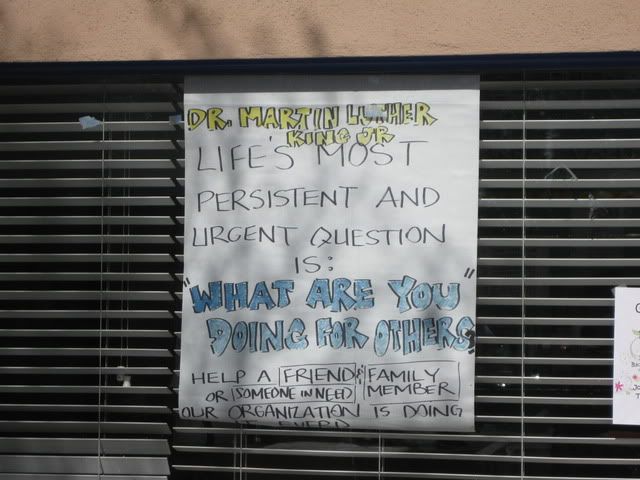 DR. MARTIN LUTHER
KING JR
LIFE'S MOST
PERSISTENT AND
URGENT QUESTION
IS:
"WHAT ARE YOU"
DOING FOR OTHERS
HELP A FRIEND & FAMILY
OR SOMEONE IN NEED MEMBER
OUR ORGANIZATION IS DOING